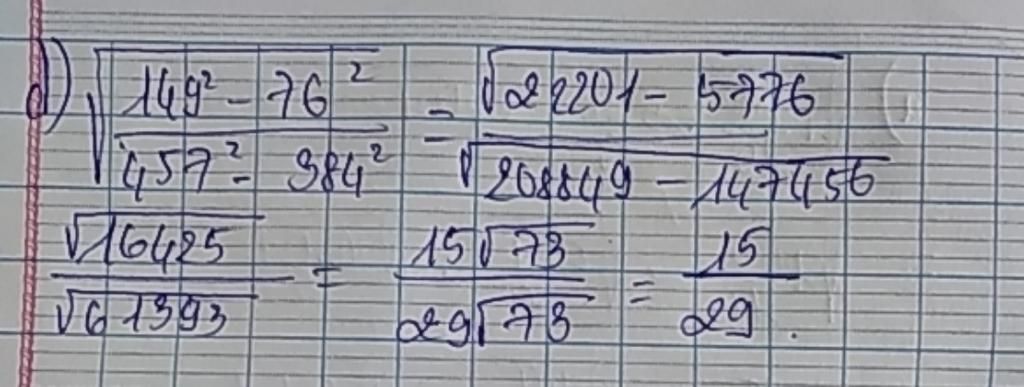 d) √((149² - 76²)/(457² - 384²)) = √(22201 - 5776)/√(208849 - 147456)
√16425/√61393 = 15√73/29√73 = 15/29.